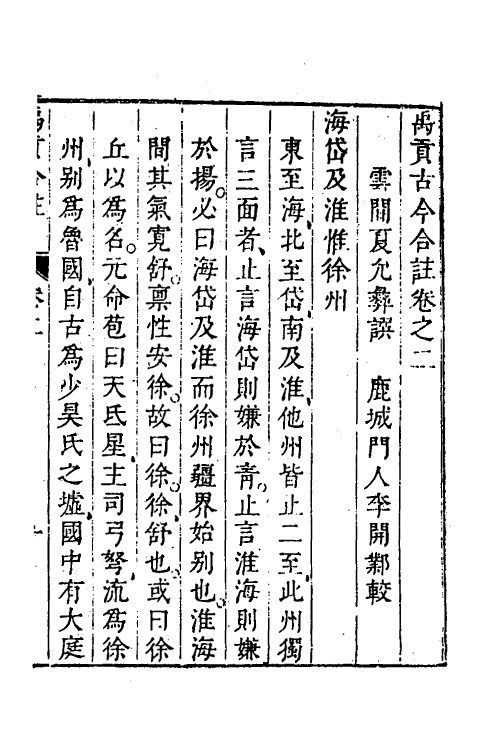 禹貢古今合註卷之二
雲間夏允彝譔　鹿城門人李開鄴較
海岱及淮惟徐州
東至海、北至岱、南及淮、他州皆止二至、此州獨
言三面者、止言海岱則嫌於青。止言淮海則嫌
於揚。必曰海岱及淮而徐州疆界始別也。淮海
間其氣寬舒。稟性安徐。故曰徐。徐、舒也。或曰徐
丘以為名。元命苞曰天氐星、主司弓弩、流為徐
州、別為魯國、自古為少昊氏之墟、國中有大庭
禹貢合註
卷二
一